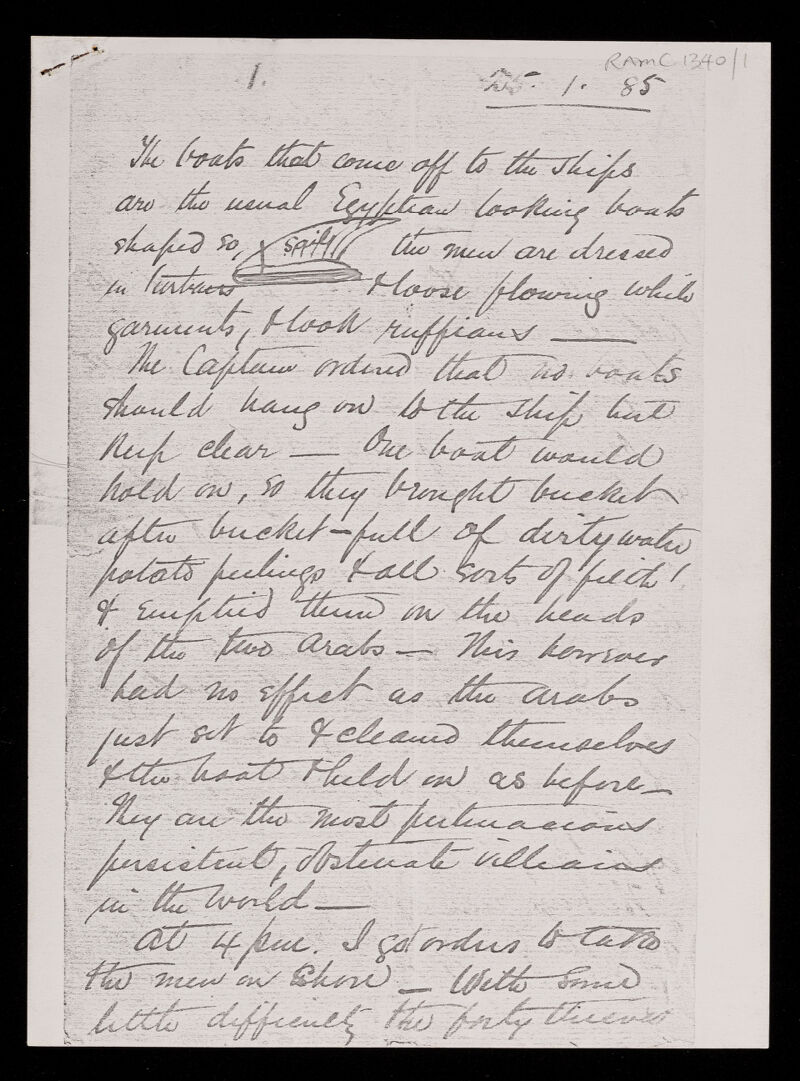 RAMC 1340/1
1.
25. 1. 85
The boats that come off to the ships
are the usual Egyptian looking boats
shaped so, the men are dressed
in turbans & loose flowing white
garments, & look ruffians —
The Captain ordered that no boats
should hang on to the ship but
keep clear — One boat would
hold on, so they brought bucket
after bucket-full of dirty water
potato peelings & all sorts of filth!
& emptied them on the heads
of the two Arabs — This however
had no effect as the Arabs
just set to & cleaned themselves
& the boat & held on as before —
They are the most pertinacious
persistent, obstinate villains
in the world —
At 4 p.m. I got orders to take
the men on shore — With some
little difficulty the forty thieves